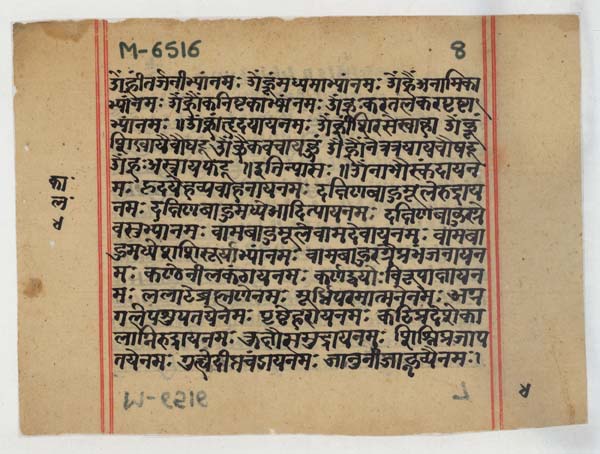 M-6516
8
ॐह्रींतर्जनीभ्यांनमः ॐह्रूंमध्यमाभ्यांनमः ॐह्रैंअनामिका
भ्यांनमः ॐह्रौंकनिष्टकाभ्यांनमः ॐह्रःकरतलकरपृष्टा
भ्यांनमः ॥ ॐह्रांहृदयायनमः ॐह्रींशिरसेस्वाहा ॐह्रूं
शिखायैवौषट् ॐह्रैंकवचायहुं ॐह्रौंनेत्रत्रयायवौषट्
ॐह्रःअस्त्रायफट् ॥ इतिन्यासः ॥ ॐनाभौस्कंदायन
मः हृदयेहव्यवाहनायनमः दक्षिणबाहुमूलेरुद्राय
नमः दक्षिणबाहुमध्येआदित्यायनमः दक्षिणबाहु
वसुभ्यांनमः वामबाहुमूलेवामदेवायनमः वामबा
हुमध्येशशिसूर्याभ्यांनमः वामबाहु प्रभंजनायन
मः कंठेनीलकंठायनमः कर्णद्वयोःविरूपाक्षायन
मः ललाटेब्रह्मणेनमः मूर्ध्निपरमात्मनेनमः अग्र
गलेपशुपतयेनमः पृष्टेहरायनमः कटिप्रदेशेका
लाग्निरुद्रायनमः कुक्षौसमुद्रायनमः शिश्निप्रजाप
तयेनमः गुह्ये चंडायनमः जानुनीजाह्नव्यैनमः।
का
लं
४
४